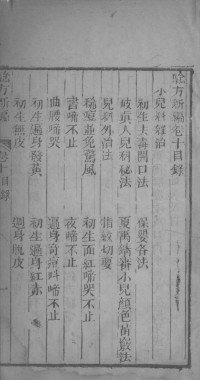 驗方新編卷十目錄
小兒科雜治
初生去毒開口法
保嬰各法
岐眞人兒科秘法
夏禹鑄審小兒顏色苗竅法
兒科外治法
指紋切要
稀痘並免驚風
初生面紅啼哭不止
晝啼不止
夜啼不止
曲腰啼哭
遍身奇痘叫啼不止
初生遍身發黃
初生遍身紅赤
初生無皮
遍身魚皮
驗方新編 卷十目錄